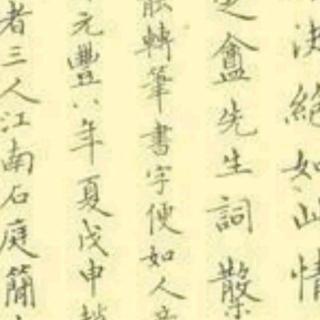 決絕如此情
盦先生詞
轉筆書字便如人
元豐八年夏戊申趙
者三人江南石庭簡